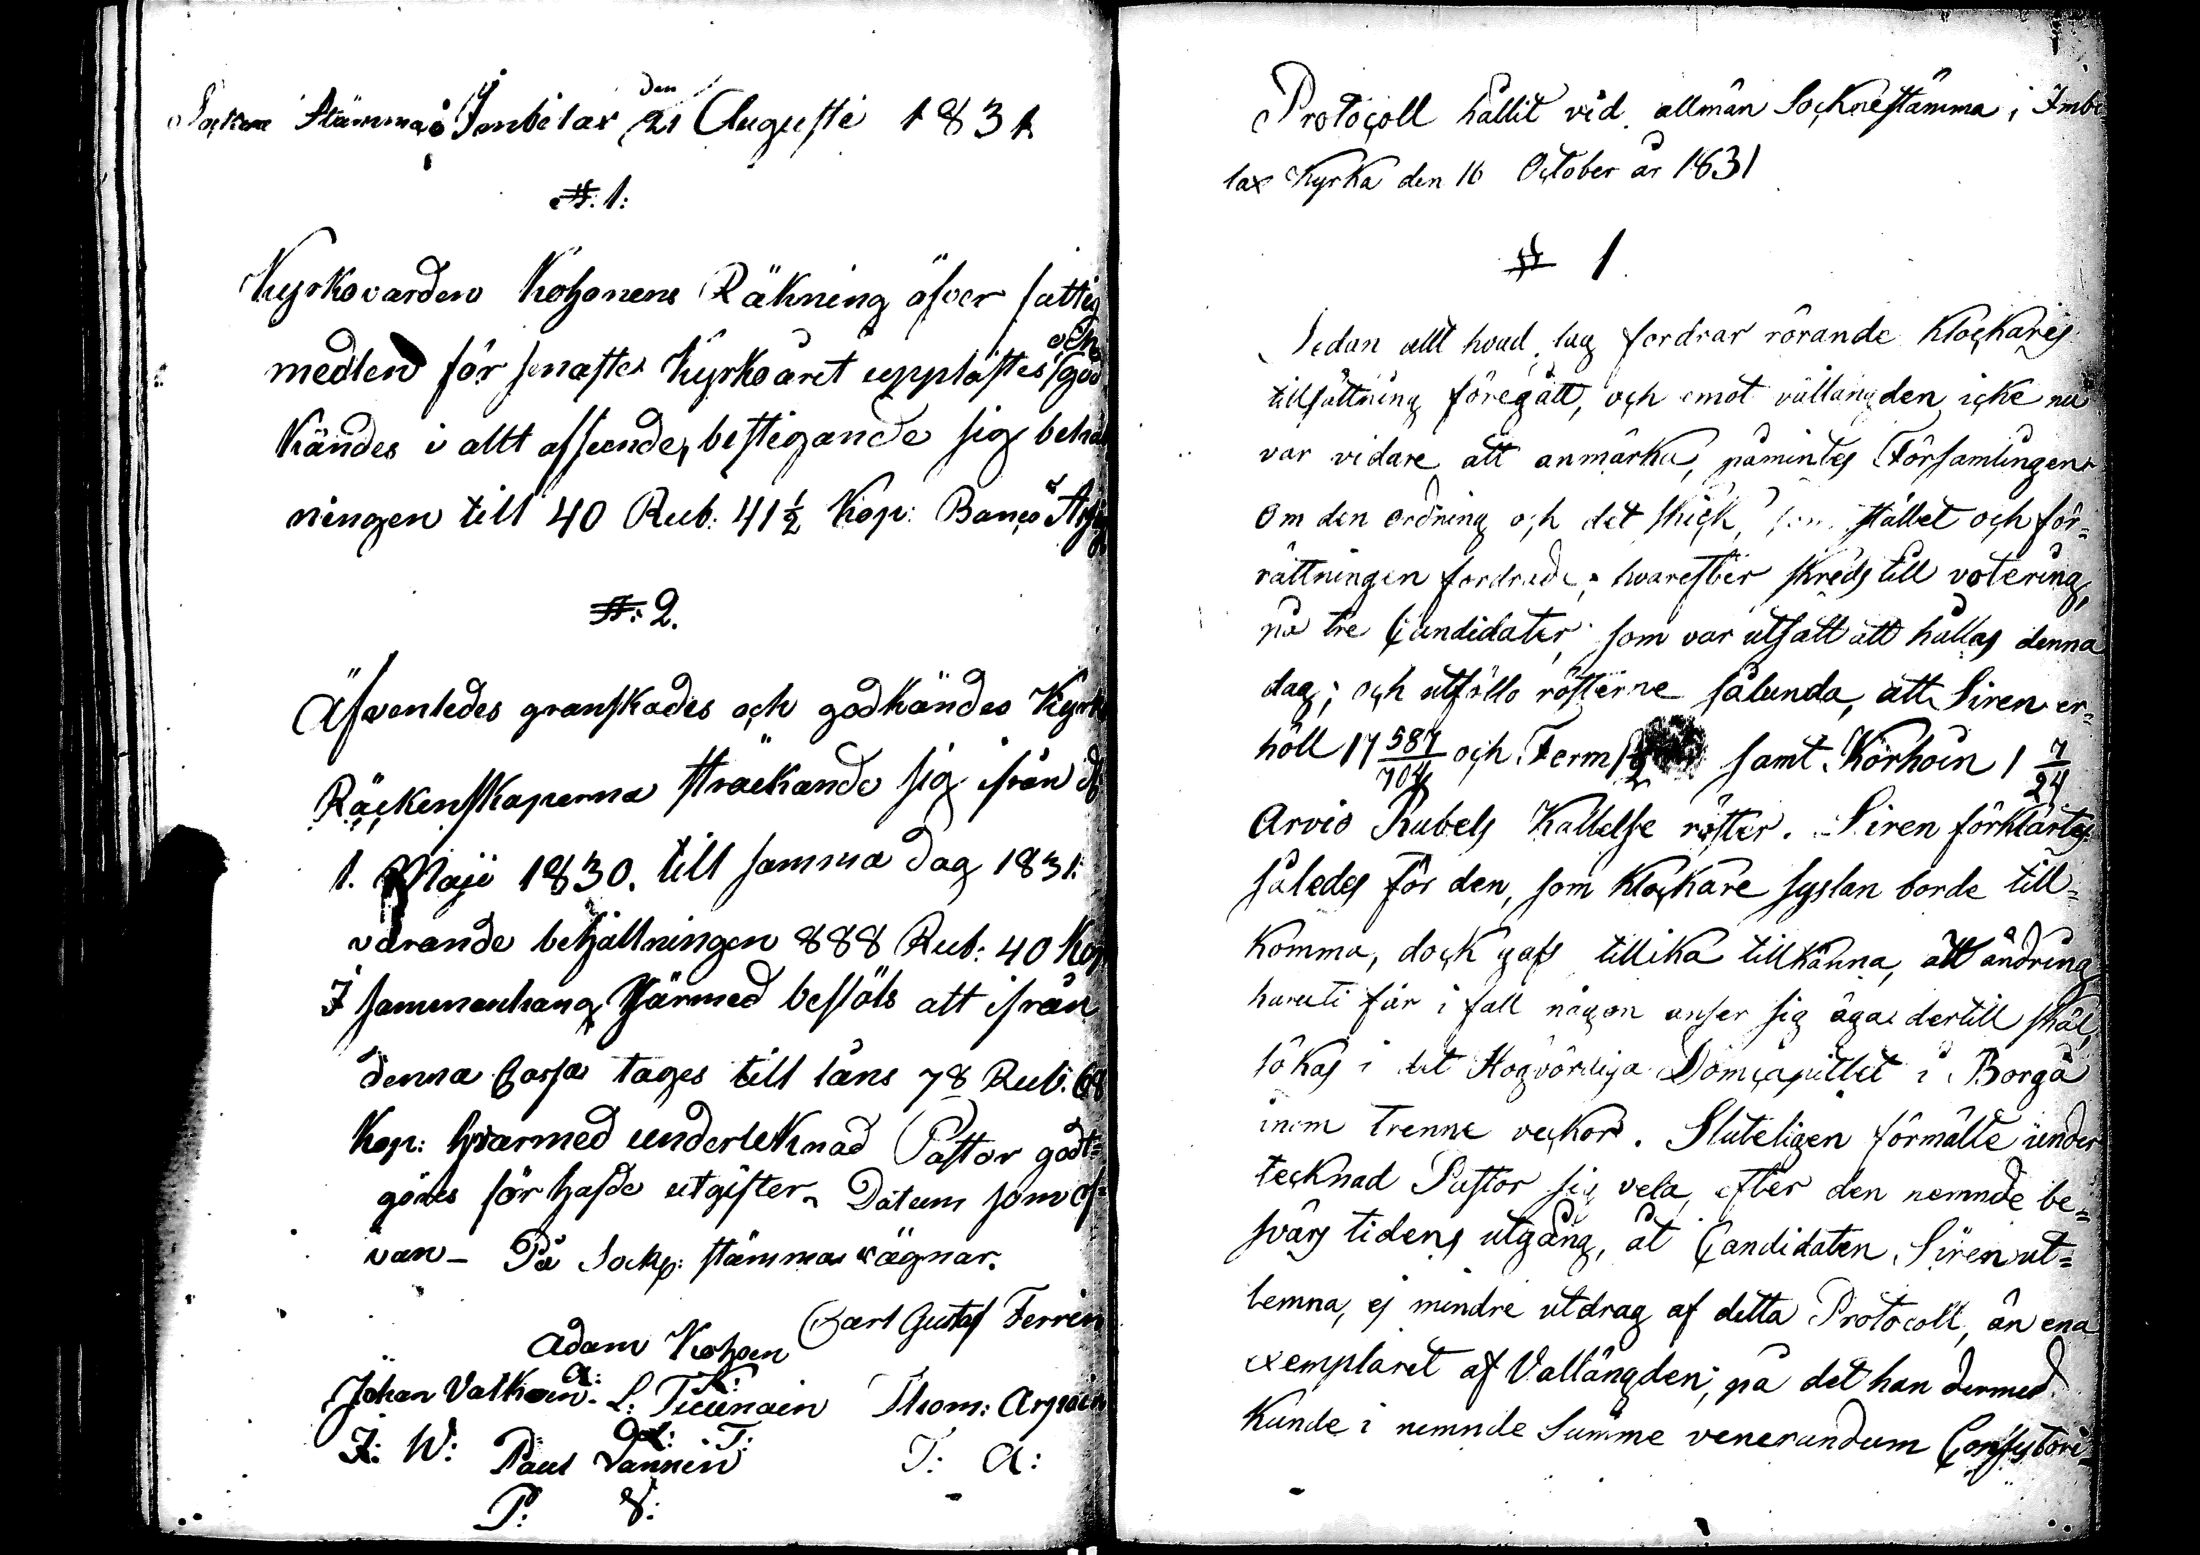 Sockne Stämma i Imbilax den 21 Augusti 1831
#. 1:
Kyrkovärden Kohonens Räkning öfver fattig
medlen för senaste Kyrkoåret upplästes och god
kändes i allt afseende, bestigande sig behåll
ningen till 40 Rub: 41 1/2 Kop: Banco Assig
#: 2.
Äfvenledes granskades och godkändes Kyrko
Räckenskaperna sträckande sig ifrån d
1. Maji 1830. till samma dag 1831.
varande behållningen 888 Rub: 40 Kop
I sammanhang härmed beslöts att ifrån
denna Cassa tages till låns 78 Rub: 68
Kop: hvarmed undertecknad Pastor godt=
göres för hafde utgifter. Datum som of=
van – På Sockn: stämmas vägnar.
Carl Gustaf Ferrin
Adam Kohoen
A: K:
Johan Valkoin. L: Tiuinain Thom: Arpain
J: W: L: T: T: A:
Paul Vannin
P: V:
Protocoll hållit vid allmän Socknestämma i Imbi
lax Kyrka den 16 October år 1831
# 1
Sedan allt hvad lag fordrar rörande klockares
tillsättning föregått, och emot vallängden icke nu
var vidare att anmärka, påmintes Församlingen
om den ordning och det skick, som stället och för=
rättningen fordrade; hvarefter skreds till votering
på tre Candidater, som var utsatt att hållas denna
dag; och utföllo rösterne sålunda, att Siren er=
höll 17 587/704 och Ferm samt Korhoin 1 7/24
Arvid Rubels Kallelse röster. Siren förklartes
således för den, som klockare syslan borde till=
komma, dock gafs tillika tillkänna, att ändring
haruti får i fall någon anser sig äga dertill skäl,
sökas i det Högvördiga Domcapitlet i Borgå
inom trenne veckor. Sluteligen förmälte under
tecknad Pastor sig vela, efter den nemnde be=
svärs tidens utgång, åt Candidaten Siren ut=
lemna, ej mindre utdrag af detta Protocoll, än ena
exemplaret af Vallängden, på det han dermed
kunde i nemnde Summe venerandum Consistori=